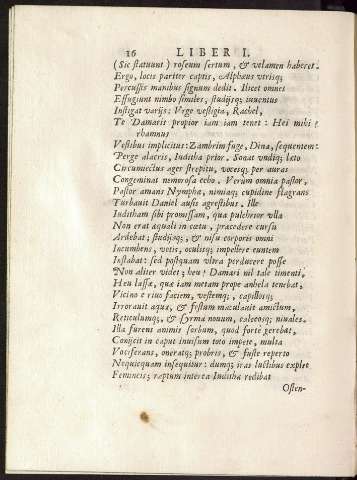 16 LIBER I.
(Sic statuunt) roseum sertum, & velamen haberet.
Ergo, locis pariter captis, Alphæus vtrisq;
Percussis manibus signum dedit. Ilicet omnes
Effugiunt nimbo similes, studijsq; iuuentus
Instigat varijs: Vrge vestigia, Rachel,
Te Damaris propior iam iam tenet: Hei mihi
rhamnus
Vestibus implicitus: Zambrim fuge, Dina, sequentem:
Perge alacris, Iuditha prior. Sonat vndiq; læto
Circumiectus ager strepitu, vocesq; per auras
Congeminat nemorosa echo. Verum omnia pastor,
Pastor amans Nymphæ, nimiaq; cupidine flagrans
Turbauit Daniel ausis agrestibus. Ille
Iuditham sibi promissam, qua pulchrior vlla
Non erat æquali in cœtu, præcedere cursu
Ardebat; studijsq; & nisu corporis omni
Incumbens, vocie, oculisq; impellere euntem
Instabat: sed postquam vltra perducere posse
Non aliter videt; heu! Damari nil tale timenti,
Heu lassæ, quæ iam metam prope anhela tenebat,
Vicino e riuo faciem, vestemq;, capillosq;
Irrorauit aqua, & festum maculauit amictum,
Reticulumq; & syrma nouum, calceosq; niuales.
Illa furens animis sorbum, quod fortè gerebat,
Conijcit in caput inuisum toto impete, multa
Vociferans, oneratq; probris, & fuste reperto
Nequicquam insequitur: dumq; iras luctibus explet
Femineis; raptum interea Iuditha redibat
Osten-